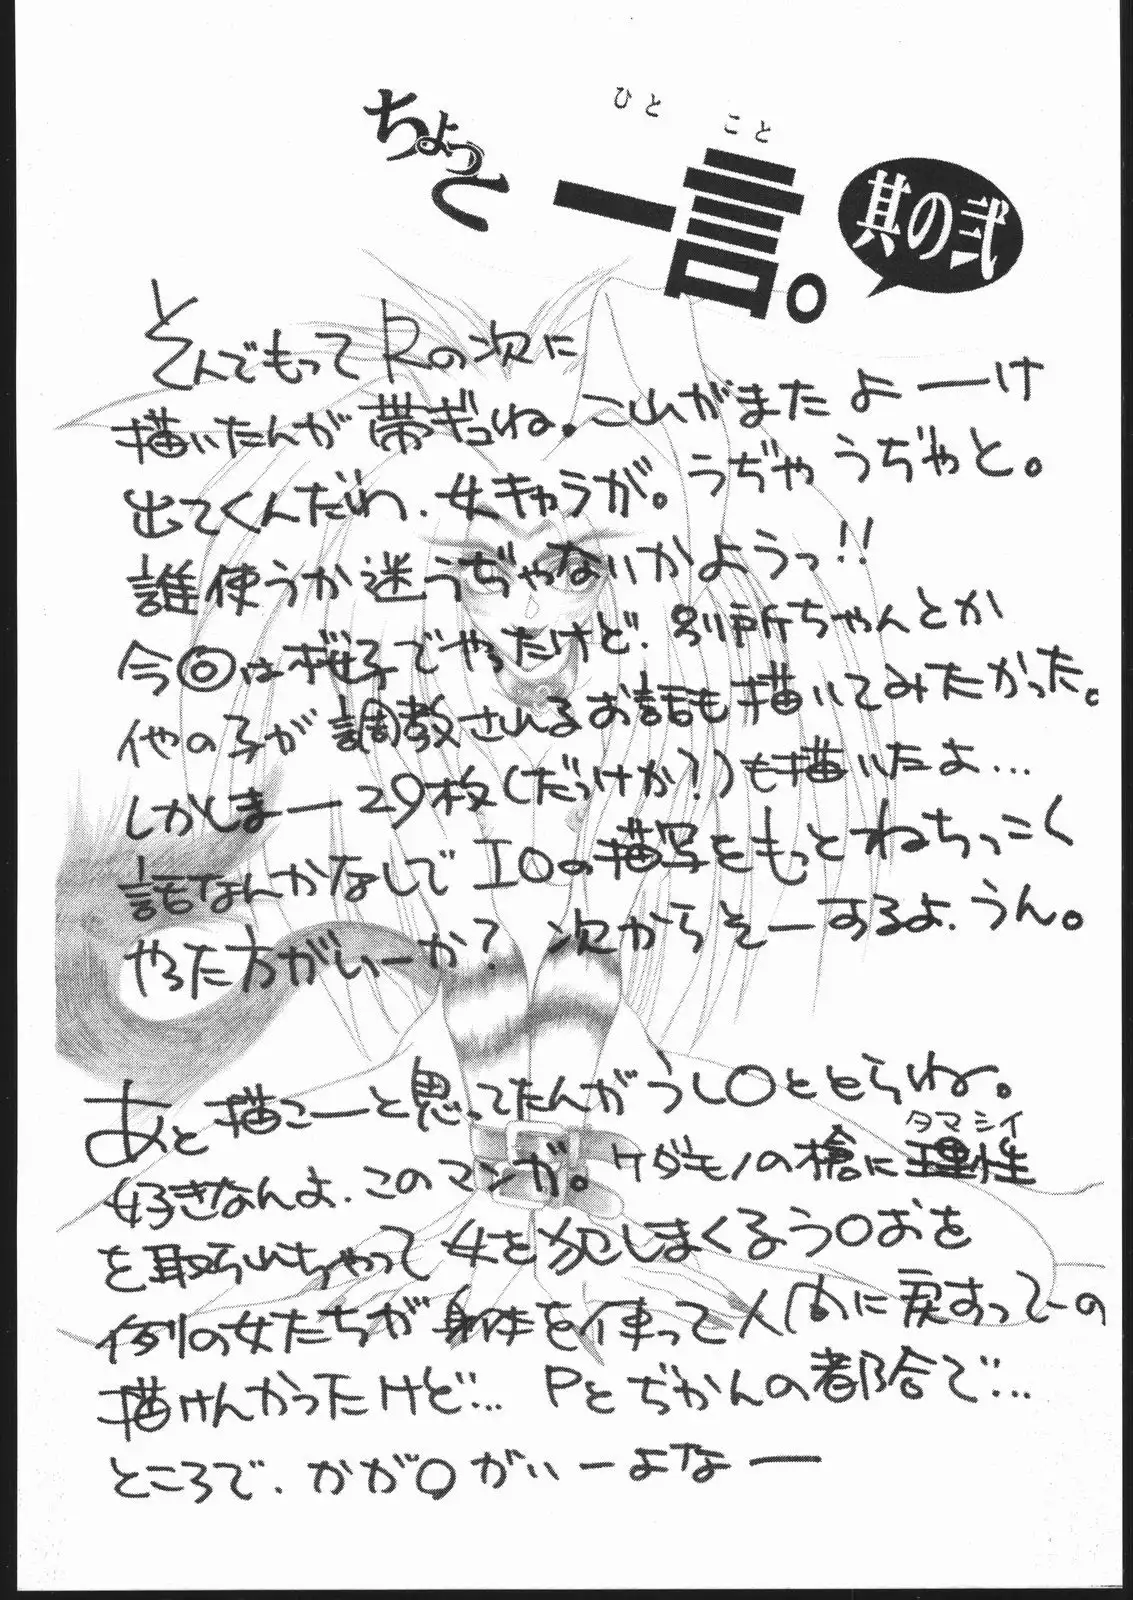 ちょっと一言。
ひとこと
其の弐
とんでもってRの次に
描いたんが帯ギュね。こいがまたよーけ
出てくんだわ、女きゃらが。うぢゃうぢゃと。
誰使うか迷うぢゃないかようっ!!
今◎は桜子でやったけど、別所ちゃんとか
他の子が調教されるお話も描いてみたかった。
しかしまー29枚(だっけか?)も描いたよ…
話なんかなしでIOの描写をもっとねちっこく
やった方がいーか?次からそーするよ、うん。
あと描こーと思ってたんがうし○ととらね。
好きなんよ、このマンガ。ケダモノの槍に理性
タマシイ
を取られちゃって女を犯しまくるう○おを
例の女たちが身体を使って人間に戻すってーの
描けんかったけど… Pとぢかんの都合で…
ところで、かが○がいーよなー